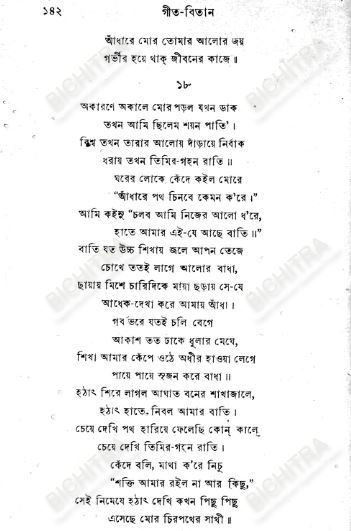 ১৪২ গীত-বিতান
আঁধারে মোর তোমার আলোর জয়
গভীর হয়ে থাক্ জীবনের কাজে॥
১৮
অকারণে অকালে মোর পড়ল যখন ডাক
তখন আমি ছিলেম শয়ন পাতি'।
বিশ্ব তখন তারার আলোয় দাঁড়ায়ে নির্বাক
ধরায় তখন তিমির-গহন রাতি॥
ঘরের লোকে কেঁদে কইল মোরে
"আঁধারে পথ চিনবে কেমন ক'রে।"
আমি কইনু "চলব আমি নিজের আলো ধ'রে,
হাতে আমার এই-যে আছে বাতি॥"
বাতি যত উচ্চ শিখায় জ্বলে আপন তেজে
চোখে ততই লাগে আলোর বাধা,
ছায়ায় মিশে চারিদিকে মায়া ছড়ায় সে-যে
আধেক-দেখা করে আমায় আঁধা।
গর্ব ভরে যতই চলি বেগে
আকাশ তত ঢাকে ধূলার মেঘে,
শিখা আমার কেঁপে ওঠে অধীর হাওয়া লেগে
পায়ে পায়ে সৃজন করে বাধা॥
হঠাৎ শিরে লাগল আঘাত বনের শাখাজালে,
হঠাৎ হাতে নিবল আমার বাতি।
চেয়ে দেখি পথ হারিয়ে ফেলেছি কোন্ কালে
চেয়ে দেখি তিমির-গহন রাতি।
কেঁদে বলি, মাথা ক'রে নিচু
"শক্তি আমার রইল না আর কিছু,"
সেই নিমেষে হঠাৎ দেখি কখন পিছু পিছু
এসেছে মোর চিরপথের সাথী॥
BICHITRA